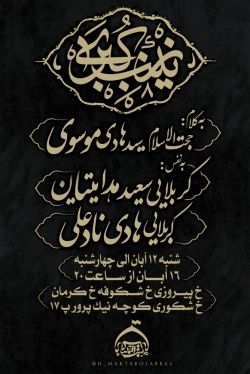 زینب کبری
به کلام:
حجت الاسلام سید هادی موسوی
به نفس:
کربلایی سعید هدایتیان
کربلایی هادی نادعلی
شنبه ۱۲ آبان الی چهارشنبه
۱۶ آبان از ساعت ۲۰
خ پیروزی خ شکوفه خ کرمان
خ شکوری کوچه نیک پرور پ ۱۷
@H_MAKTABOLABBAS